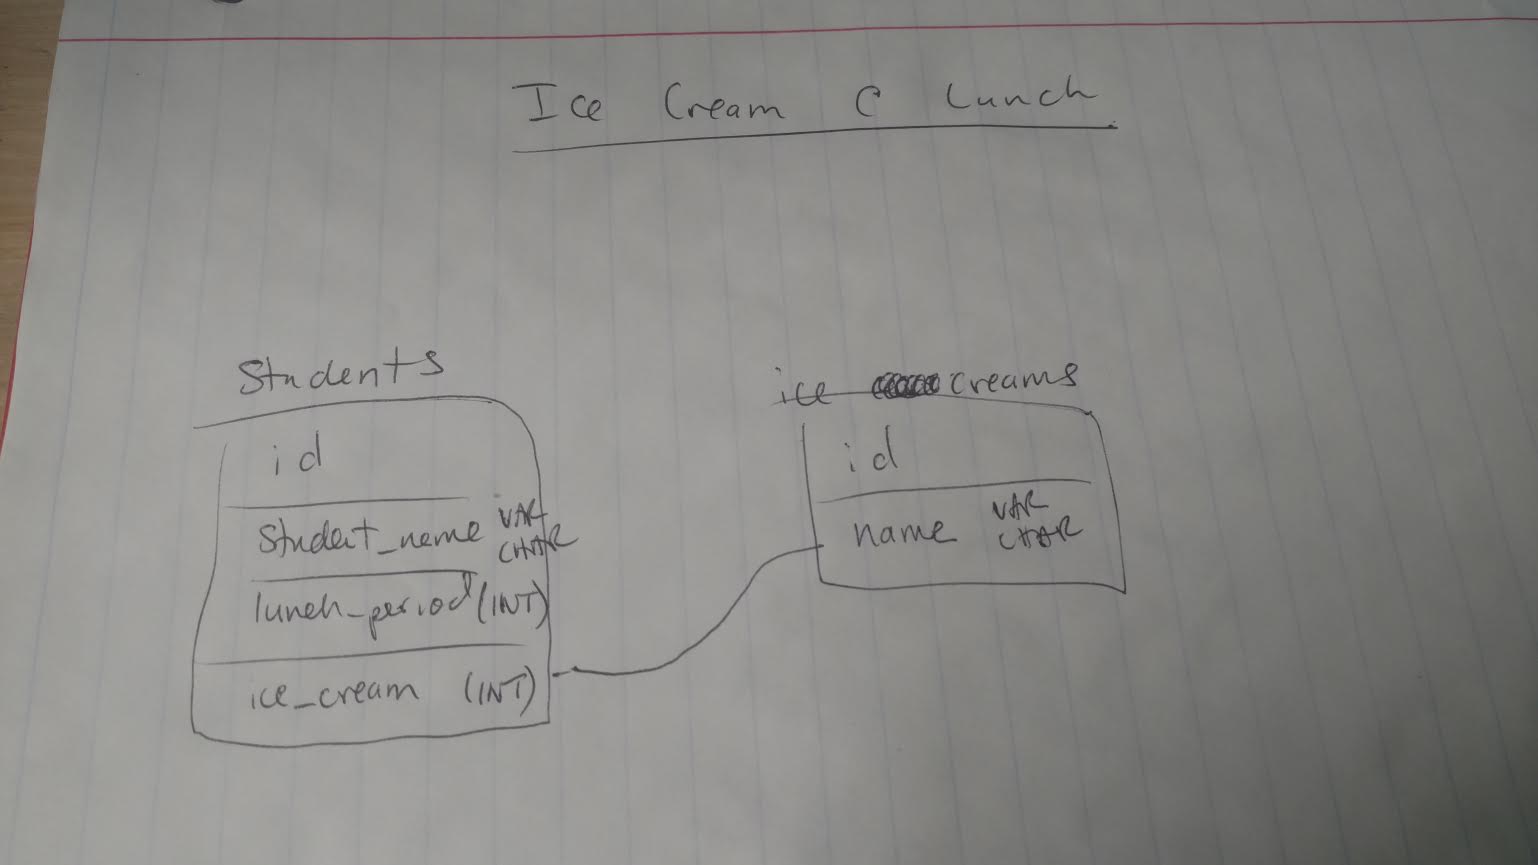 Ice Cream @ Lunch
Students
id
student_name VAR CHAR
lunch_period (INT)
ice_cream (INT)
ice creams
id
name VAR CHAR